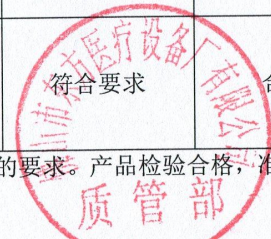 符合要求
合
的要求。产品检验合格，准
山市东方医疗设备厂有限公司
质管部